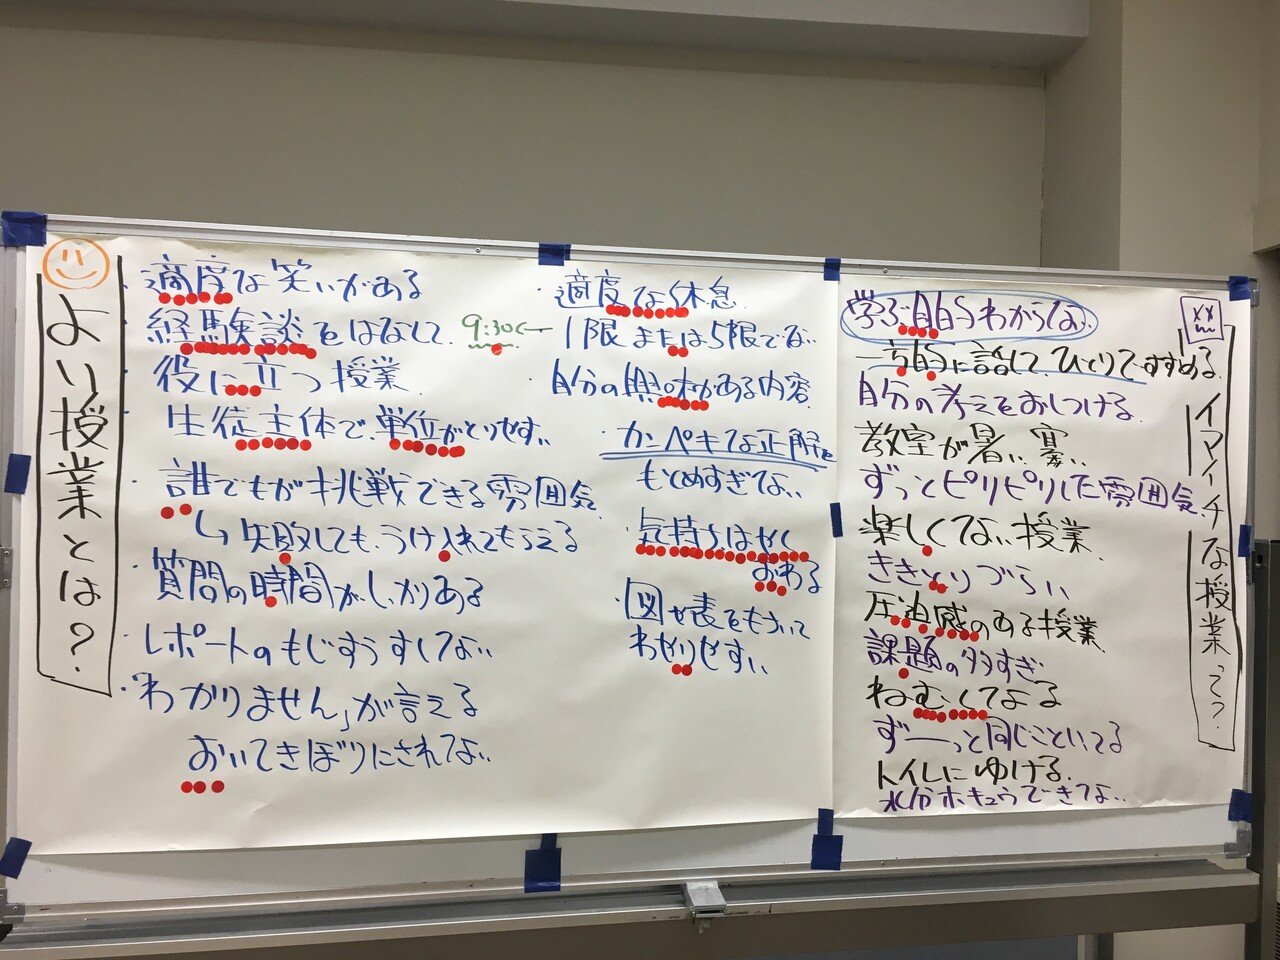 よい授業とは?
・適度な笑いがある
・経験談をはなして
・役に立つ授業
・生徒主体で、単位がとりやすい
・誰でもが挑戦できる雰囲気
↳失敗しても、うけ入れてもらえる
・質問の時間がしっかりある
・レポートのもじすうすくない
・「わかりません」が言える
おいてきぼりにされてない
・適度な休息
9:30←
・1限または5限でない
・自分の興味がある内容
・カンペキな正解を
もとめすぎない
・気持ちはやく
おわる
・図や表をもちいて
わかりやすい
イマイチな授業って?
学ぶ目的わからない
一方的に話して、ひとりですすめる
自分の考えをおしつける
教室が暑い、寒い
ずっとピリピリした雰囲気
楽しくない授業
ききとりづらい
圧迫感のある授業
課題の多すぎ
ねむくなる
ずーっと同じこといってる
トイレにゆける
水分ホキュウできない